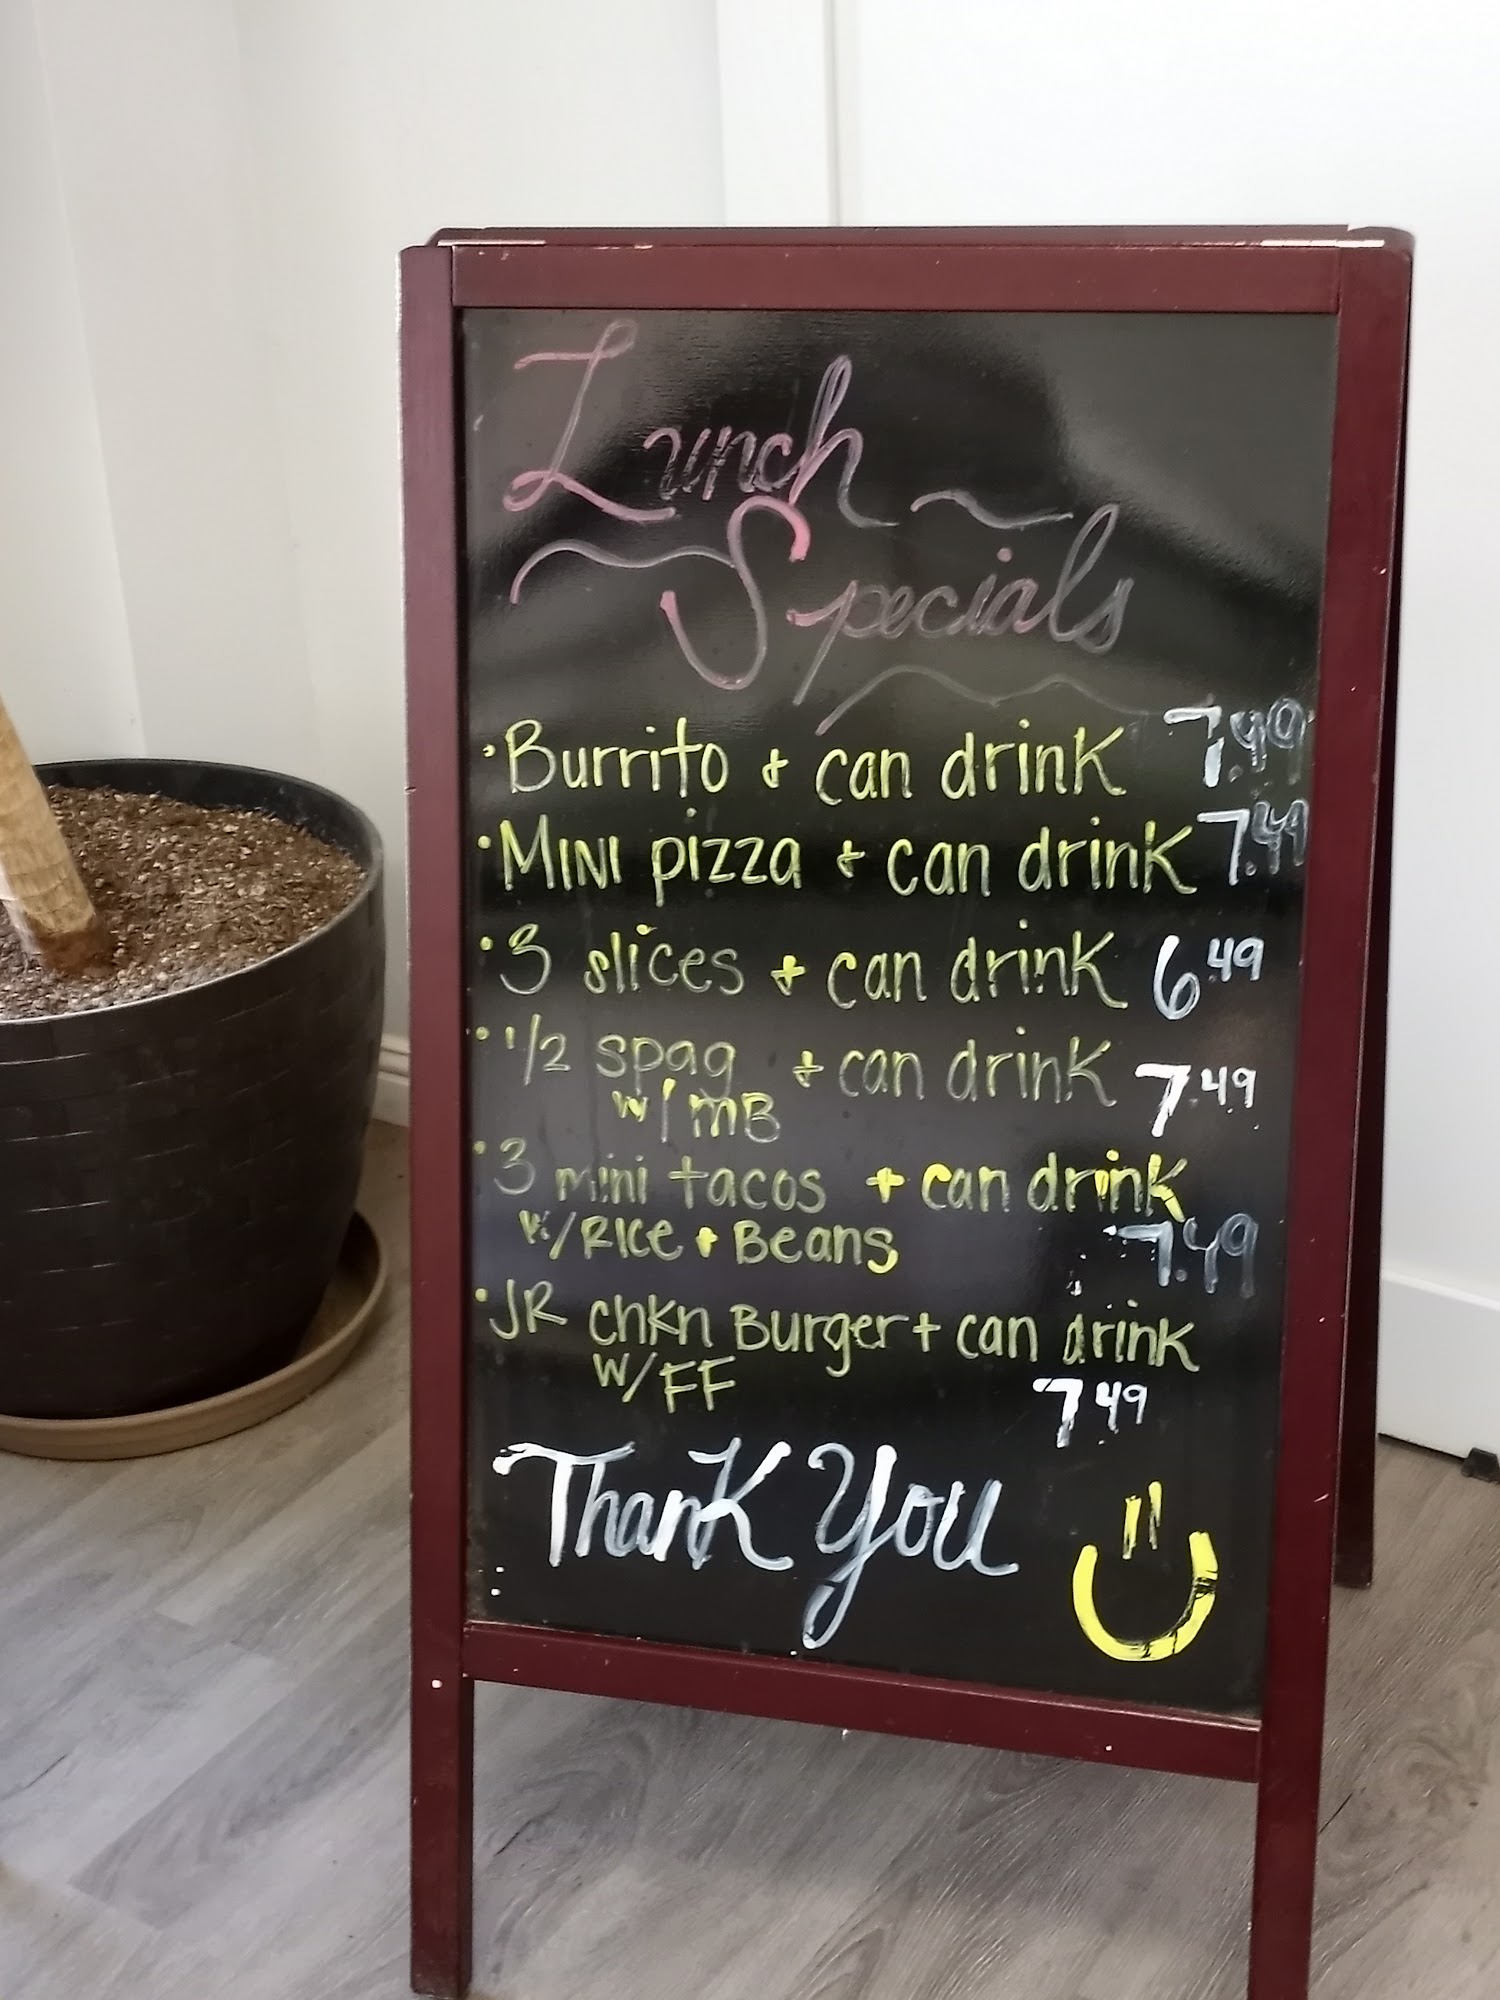 Lunch
Specials
• Burrito + can drink 7.49
• MINI pizza + can drink 7.49
• 3 slices + can drink 6.49
• 1/2 spag + can drink 7.49
w/ mB
• 3 mini tacos + can drink
w/ RICE + Beans 7.49
• JR chkn Burger + can drink
w/ FF 7.49
Thank You